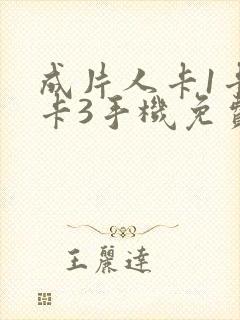 成片人卡1卡
卡3手機免費
王麗達